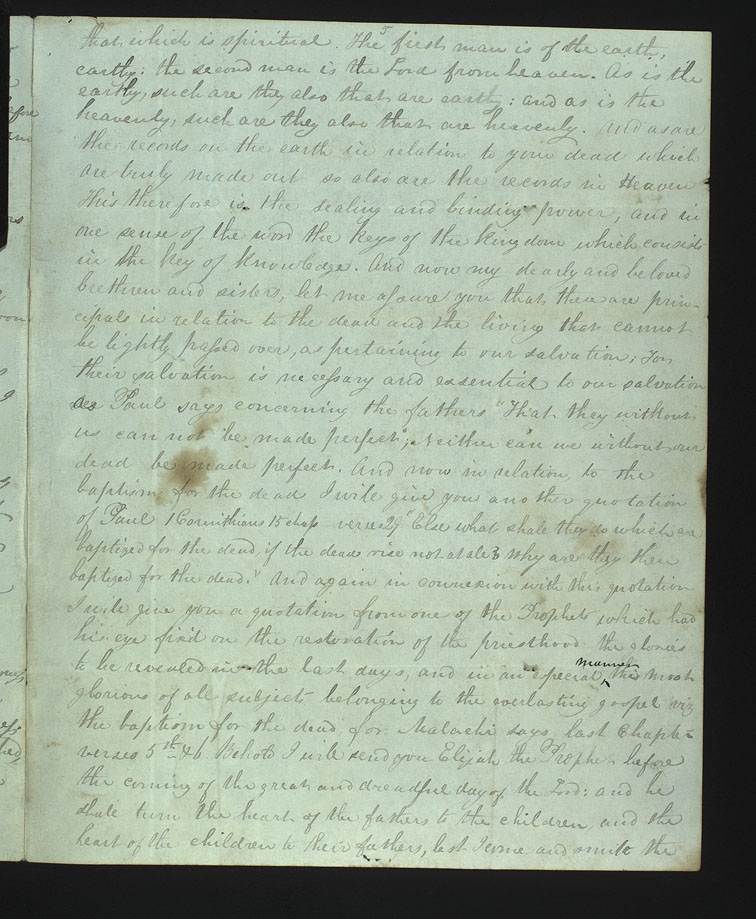 that which is spiritual. The first man is of the earth,
earthy: the second man is the Lord from heaven. As is the
earthy, such are they also that are earthy: and as is the
heavenly, such are they also that are heavenly. And as are
the records on the earth in relation to your dead which
are truly made out so also are the records in Heaven
This therefore is the sealing and binding power, and in
one sense of the word the Keys of the kingdom which consists
in the key of knowledge. And now my dearly and beloved
brethren and sisters, let me assure you that these are prin-
cipals in relation to the dead and the living that cannot
be lightly passed over, as pertaining to our salvation; For
their salvation is necessary and essential to our salvation
as Paul says concerning the fathers "That they without
us can not be made perfect"; Neither can we without our
dead be made perfect. And now in relation to the
baptism for the dead I will give you another quotation
of Paul 1 Corinthians 15 chap verse 29 "Else what shall they do which are
baptized for the dead if the dead rise not at all why are they then
baptized for the dead." And again in connexion with this quotation
I will give you a quotation from one of the Prophets which had
his eye fix'd on the restoration of the priesthood the glories
to be revealed in the last days, and in an especial manner this most
glorious of all subjects belonging to the everlasting gospel viz
the baptism for the dead for Malachi says last Chapter
verses 5th & 6 Behold I will send you Elijah the Prophet before
the coming of the great and dreadful day of the Lord: and he
shall turn the heart of the fathers to the children, and the
heart of the children to their fathers, lest I come and smite the
before
and